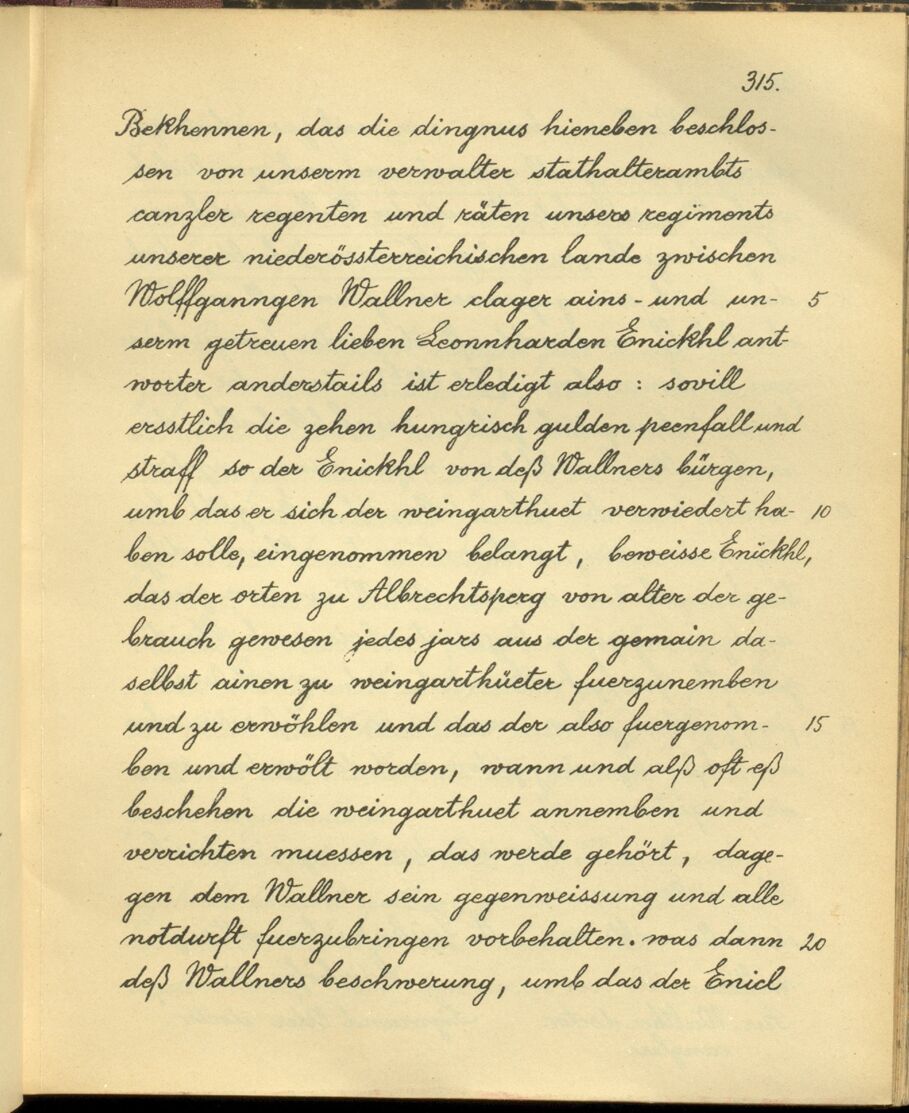 315.
Bekhennen, das die dingnus hieneben beschlos-
sen von unserm verwalter stathalterambts
canzler regenten und räten unsers regiments
unserer niederösterreichischen lande zwischen
Wolffganngen Wallner clager ains - und un- 5
serm getreuen lieben Leonnharden Enickhl ant-
worter anderstails ist erledigt also : sovill
ersstlich die zehen hungrisch gulden peenfall und
straff so der Enickhl von deß Wallners bürgen,
umb das er sich der weingarthuet verwiedert ha- 10
ben solle, eingenommen belangt, beweisse Enickhl,
das der orten zu Albrechtsperg von alter der ge-
brauch gewesen jedes jars aus der gemain da-
selbst ainen zu weingarthüeter fuerzunemben
und zu erwöhlen und das der also fuergenom- 15
ben und erwölt worden, wann und alß oft eß
beschehen die weingarthuet annemben und
verrichten muessen, das werde gehört, dage-
gen dem Wallner sein gegenweissung und alle
notdurft fuerzubringen vorbehalten. was dann 20
deß Wallners beschwerung, umb das der Enicl